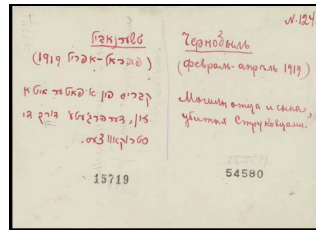 N. 124
טשערנאביל
(פעווראל-אפריל 1919)
קברים פון א פאטער און א
זון, דערהרגעטע דורך די
סטרוקאווצעס.
15719
Чернобыль
(февраль-апрель 1919)
Могилы отца и сына,
убитых Струковцами.
54580